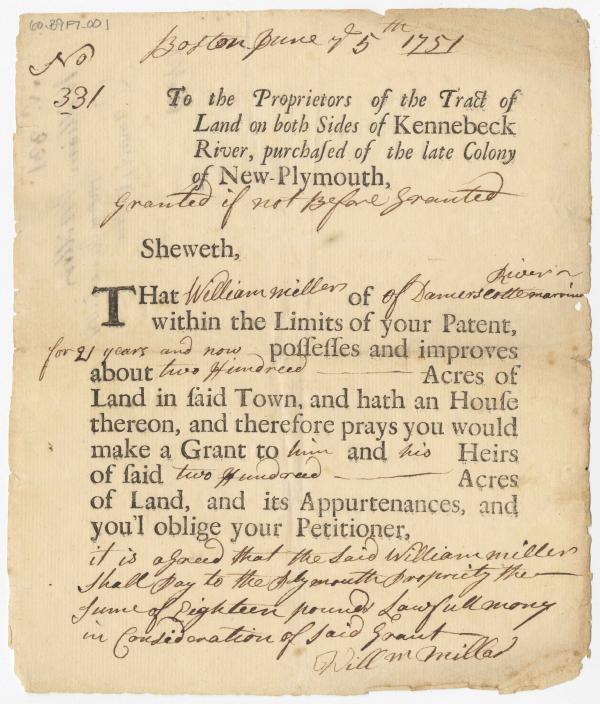 60-89F7-001
Boston June ye 5th 1751
No
331
To the Proprietors of the Tract of
Land on both Sides of Kennebeck
River, purchaſed of the late Colony
of New-Plymouth,
Granted if not Before Granted
Sheweth,
River
THat William miller of of Damerscottemarrine
within the Limits of your Patent,
for 21 years and now poſſeſſes and improves
about two Hundreed Acres of
Land in ſaid Town, and hath an Houſe
thereon, and therefore prays you would
make a Grant to him and his Heirs
of ſaid two Hundreed Acres
of Land, and its Appurtenances, and
you'l oblige your Petitioner,
it is agreed that the Said William miller
Shall Pay to the Plymouth Propriety the
Sume of Eighteen pounds Lawfull mony
in Consideration of Said Grant
Will m Millar